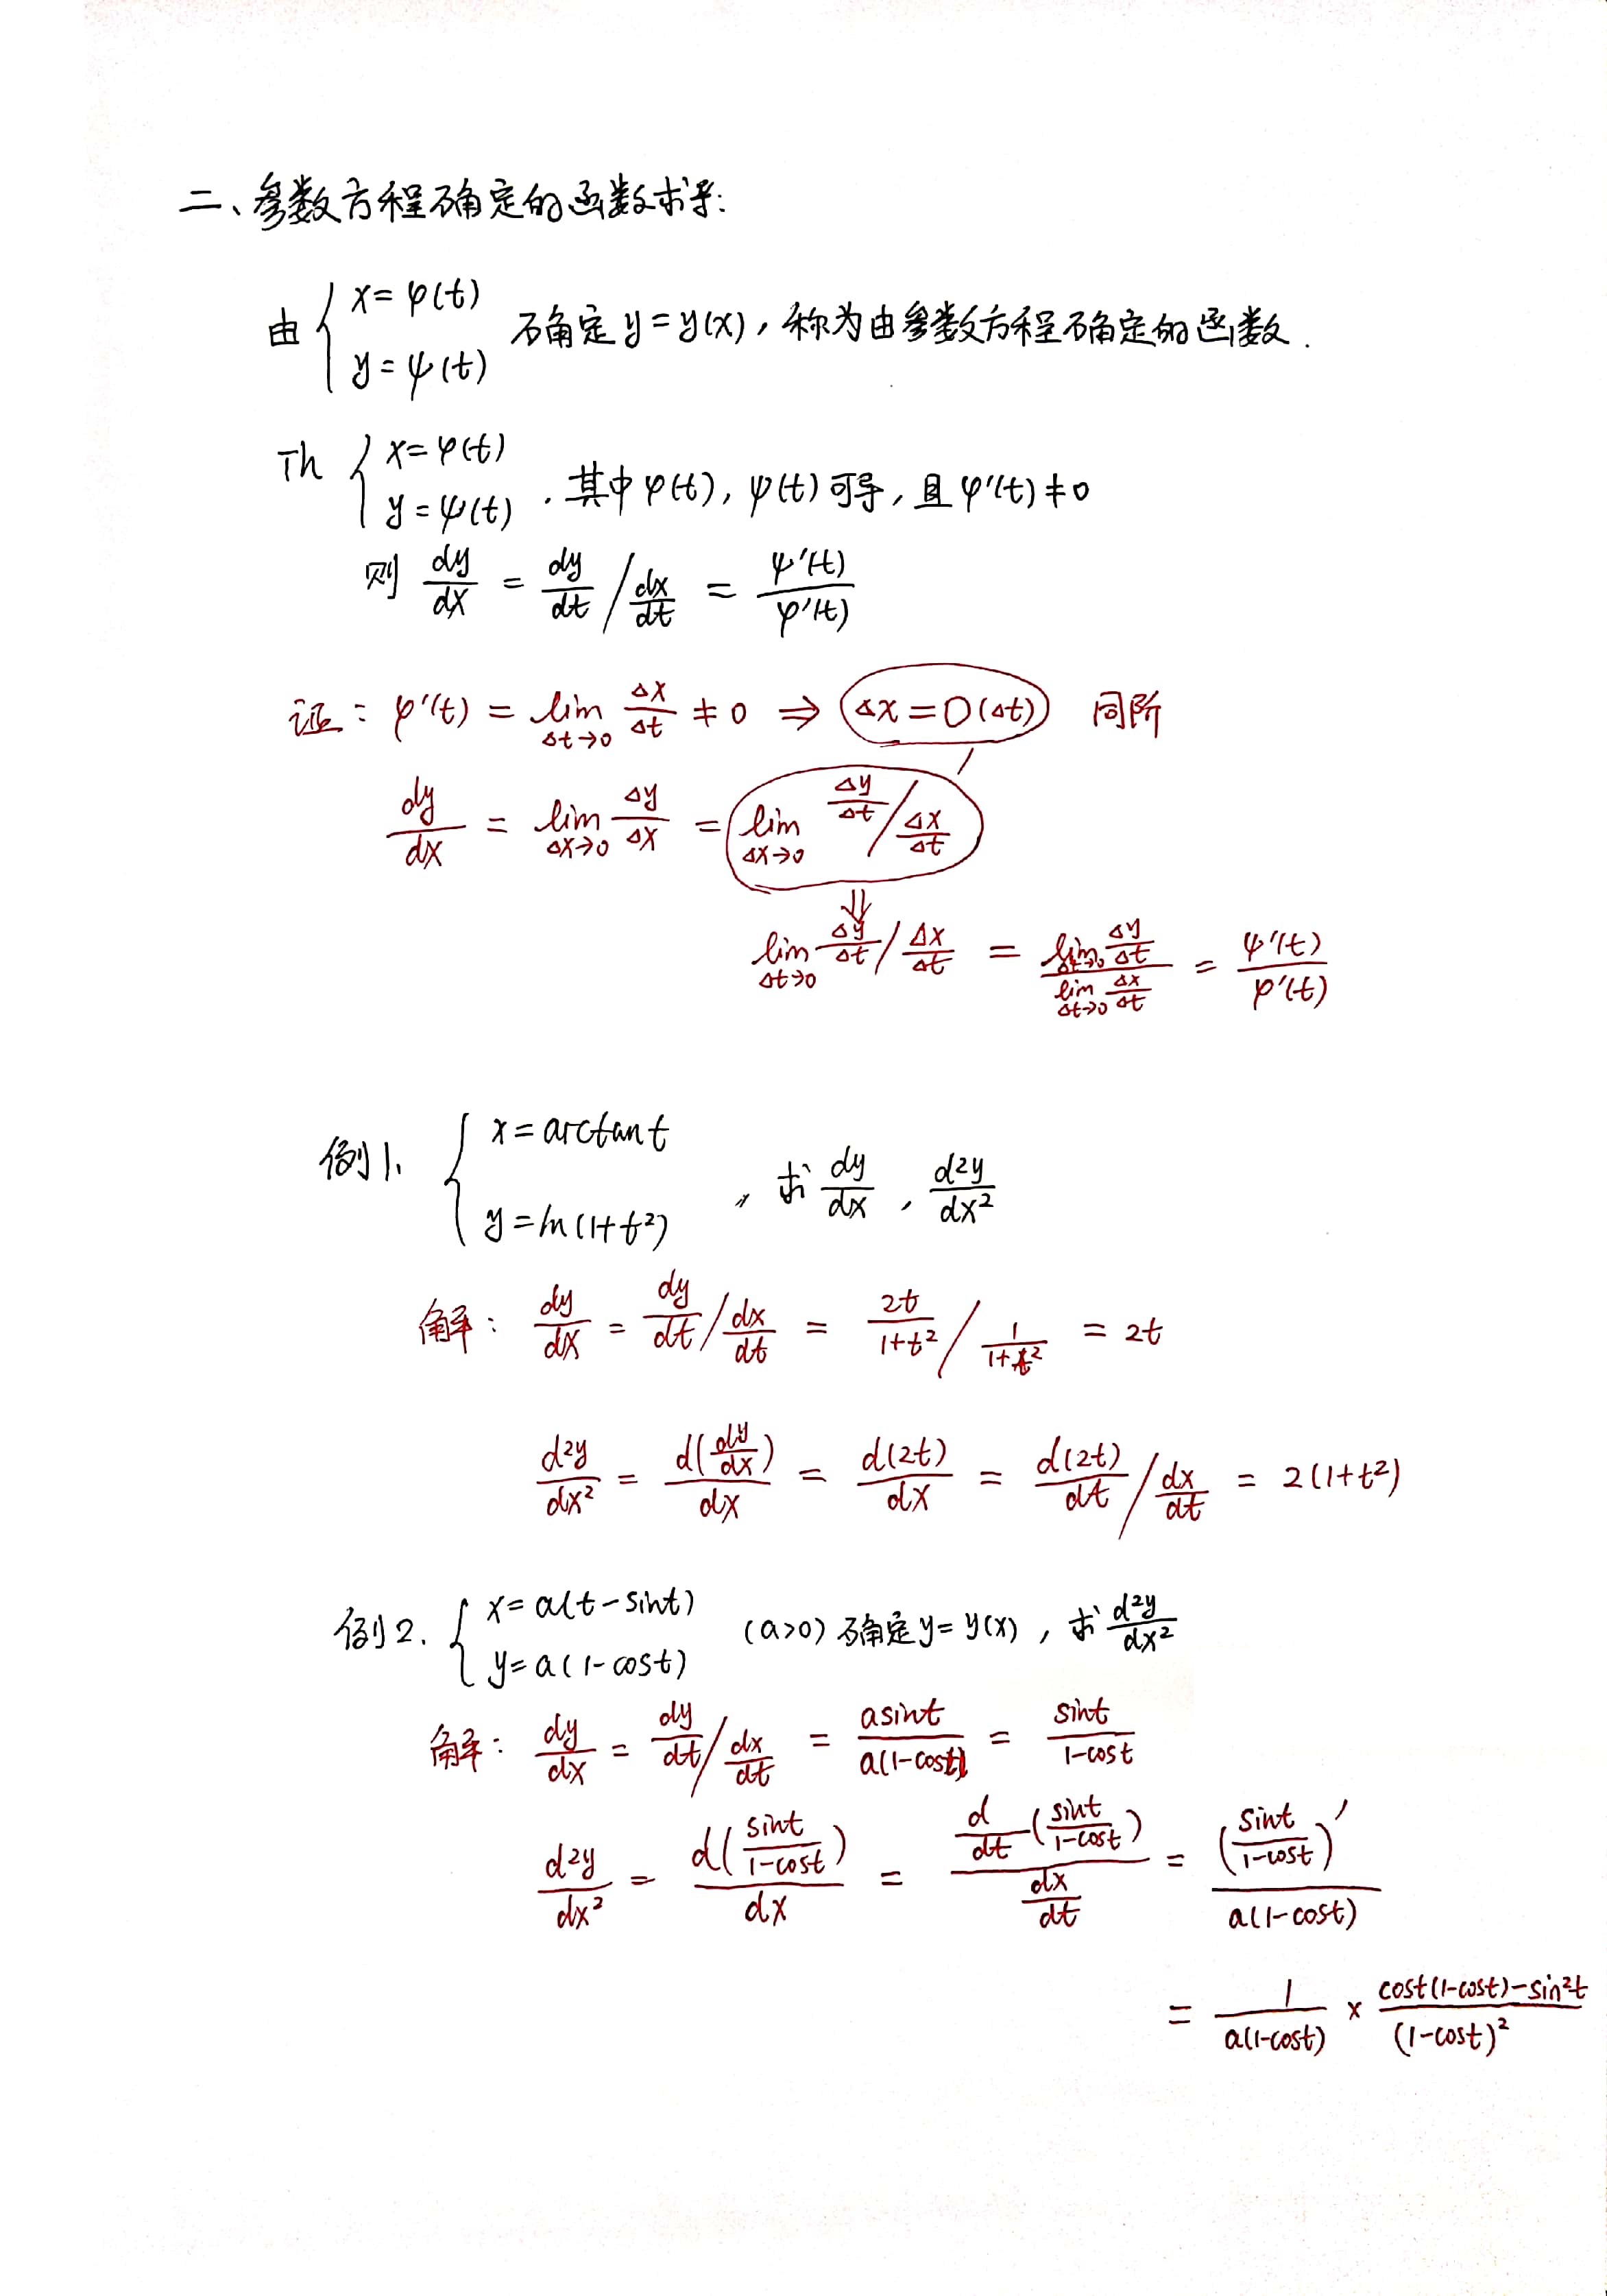 二、参数方程确定的函数求导:
由 { x = φ(t)
y = ψ(t) 确定 y = y(x), 称为由参数方程确定的函数.
Th { x = φ(t)
y = ψ(t) . 其中 φ(t), ψ(t) 可导, 且 φ'(t) ≠ 0
则 dy/dx = dy/dt / dx/dt = ψ'(t)/φ'(t)
证: φ'(t) = lim_{Δt→0} Δx/Δt ≠ 0 ⇒ Δx = O(Δt) 同阶
dy/dx = lim_{Δx→0} Δy/Δx = lim_{Δx→0} Δy/Δt / Δx/Δt
⇓
lim_{Δt→0} Δy/Δt / Δx/Δt = (lim_{Δt→0} Δy/Δt)/(lim_{Δt→0} Δx/Δt) = ψ'(t)/φ'(t)
例1. { x = arctan t
y = ln(1+t²) , 求 dy/dx , d²y/dx²
解: dy/dx = dy/dt / dx/dt = 2t/(1+t²) / 1/(1+t²) = 2t
d²y/dx² = d(dy/dx)/dx = d(2t)/dx = d(2t)/dt / dx/dt = 2(1+t²)
例2. { x = a(t-sint)
y = a(1-cost) (a>0) 确定 y = y(x), 求 d²y/dx²
解: dy/dx = dy/dt / dx/dt = asint/a(1-cost) = sint/(1-cost)
d²y/dx² = d(sint/(1-cost))/dx = (d/dt (sint/(1-cost)))/(dx/dt) = (sint/(1-cost))'/a(1-cost)
= 1/a(1-cost) × (cost(1-cost)-sin²t)/(1-cost)²